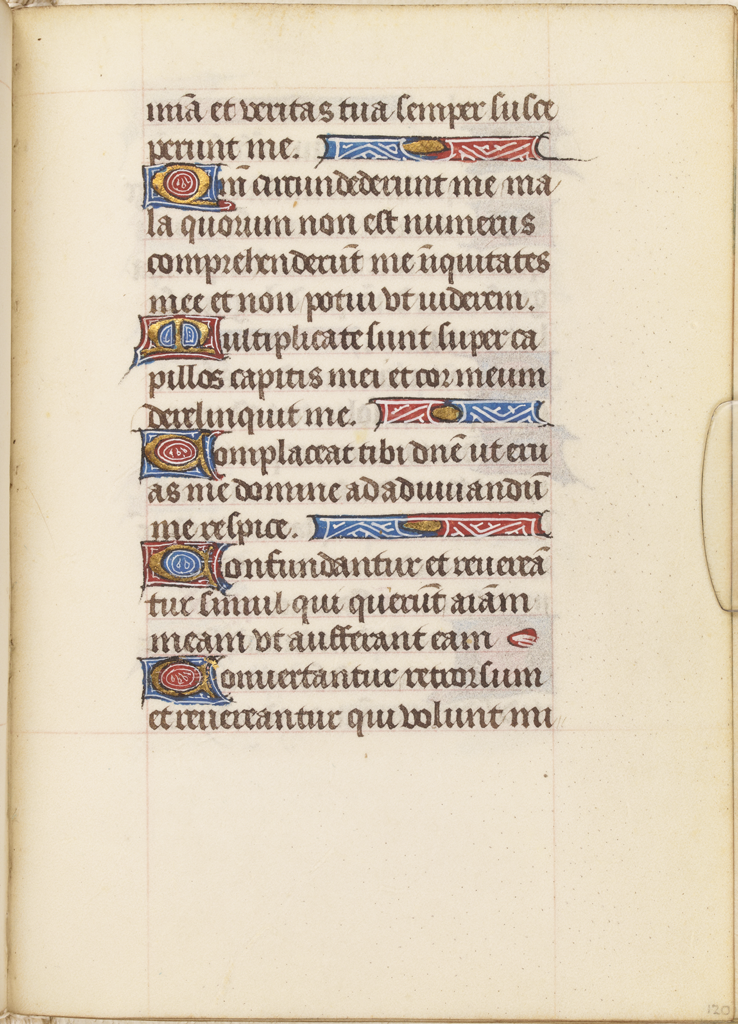 mīā et veritas tua semper susce
perunt me.
Qm̄ circundederunt me ma
la quorum non est numerus
comprehenderūt me īiquitates
mee et non potui vt uiderem.
Multiplicate sunt super ca
pillos capitis mei et cor meum
derelinquit me.
Complaceat tibi dn̄e ut eru
as me domine ad adiuuandū
me respice.
Confundantur et reuereā
tur simul qui querūt aīam
meam vt aufferant eam
Conuertantur retrorsum
et reuereantur qui volunt mi
120